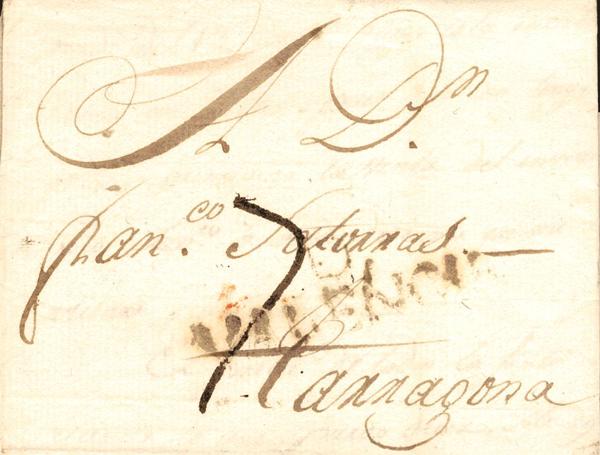 A D.n
Fran.co Satorras
7
VALENCIA
Tarragona